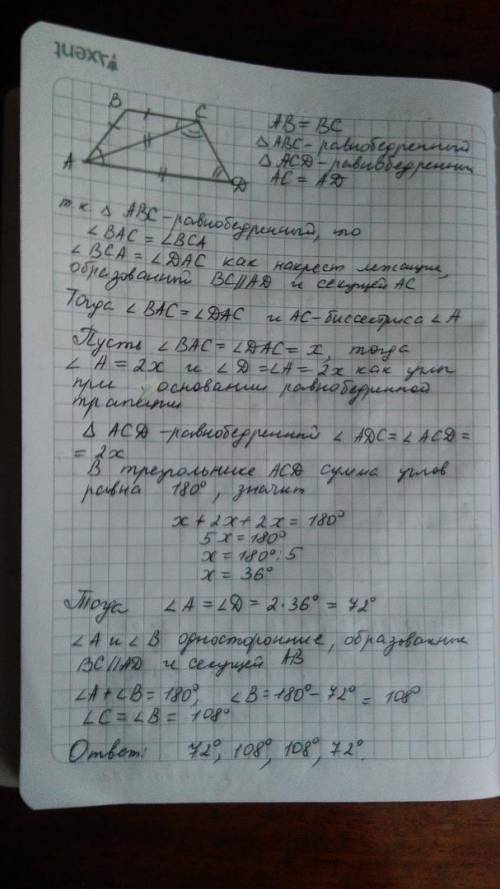 Axent
B
C
A
D
AB = BC
△ ABC - равнобедренный
△ ACD - равнобедренн
AC = AD
т.к. △ ABC - равнобедренный, то
∠ BAC = ∠ BCA
∠ BCA = ∠ DAC как накрест лежащие,
образованный BC || AD и секущей AC
Тогда ∠ BAC = ∠ DAC и AC - биссектриса ∠ A
Пусть ∠ BAC = ∠ DAC = x, тогда
∠ A = 2x и ∠ D = ∠ A = 2x как углы
при основании равнобедренной
трапеции
△ ACD - равнобедренный ∠ ADC = ∠ ACD =
= 2x
В треугольнике ACD сумма углов
равна 180°, значит
x + 2x + 2x = 180°
5x = 180°
x = 180° : 5
x = 36°
Тогда ∠ A = ∠ D = 2 · 36° = 72°
∠ A и ∠ B односторонние, образованные
BC || AD и секущей AB
∠ A + ∠ B = 180°, ∠ B = 180° - 72° = 108°
∠ C = ∠ B = 108°
Ответ: 72°, 108°, 108°, 72°.